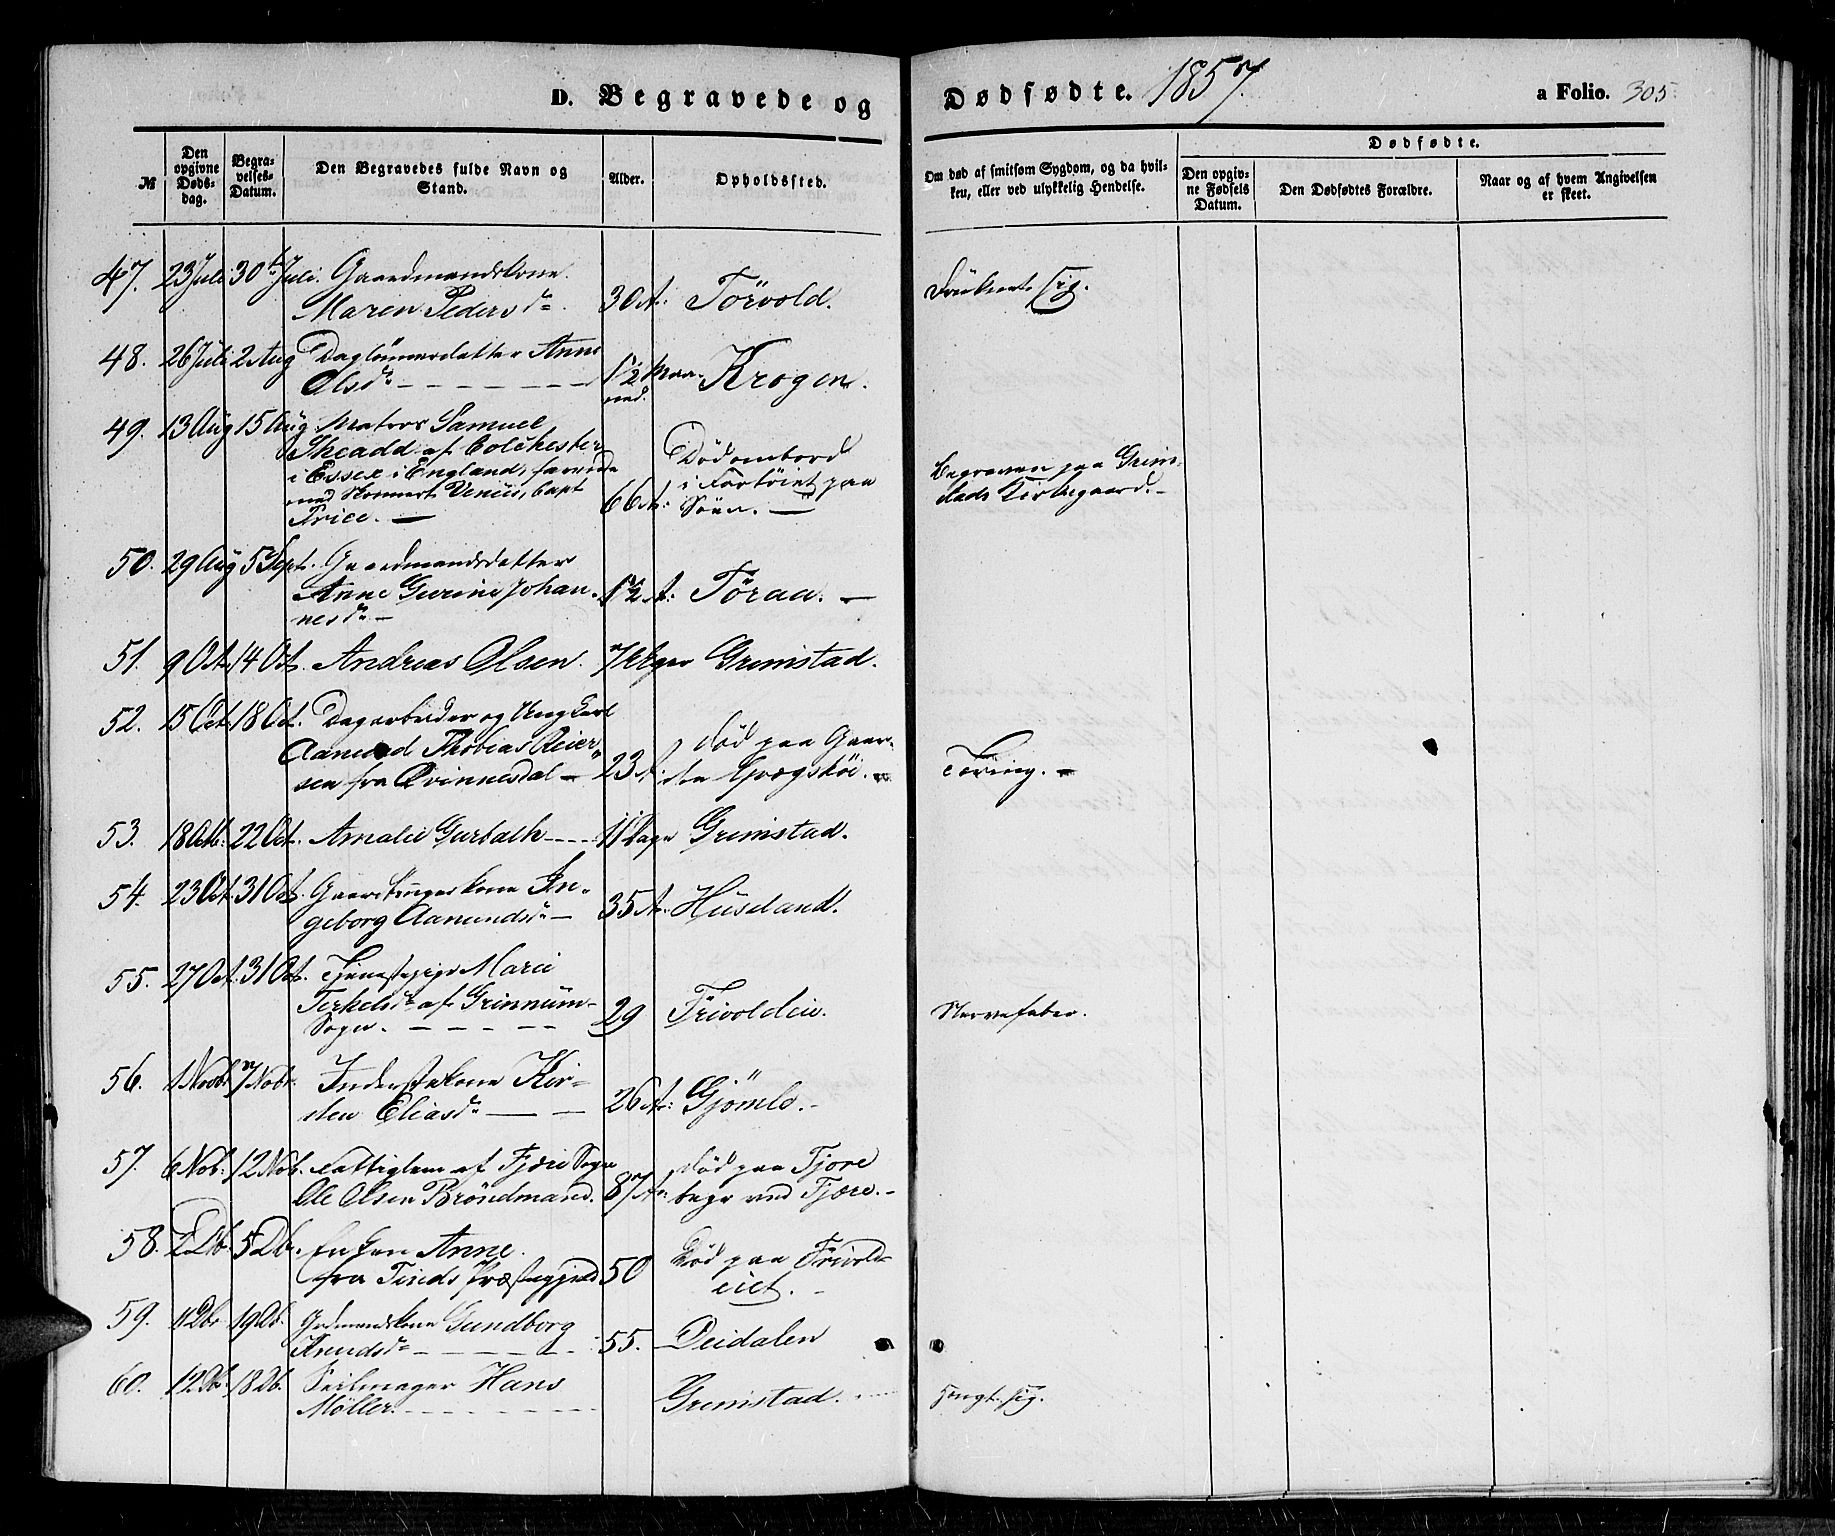 D. Begravede og Dødfødte. 1857. a Folio. 305
№
Den opgivne Dødsdag.
Begravelses-Datum.
Den Begravedes fulde Navn og Stand.
Alder.
Opholdssted.
Om død af smitsom Sygdom, og da hvilken, eller ved ulykkelig Hendelse.
Dødfødte.
Den opgivne Fødsels Datum.
Den Dødfødtes Forældre.
Naar og af hvem Angivelsen er skeet.
47. 23 Juli 30te Juli. Gaardmandskone
Maren Pedersdr. 30 A: Törvold. Druknet sig.
48. 26 Juli 2 Aug Daglönnerdatter Anne
Olsdr 1½ Maaned. Krogen.
49. 13 Aug 15 Aug Matros Samuel
Theadd af Colchester
i Essex i England, farende
med Skonnert Venus, Capt
Price. — 66 A: Död ombord
i Fartöiet paa
Söen. — Begraven paa Grimstads Kirkegaard. -
50. 29 Aug 5 Sept. Gaardmandsdatter
Anne Gurine Johannesdr - 1½ A: Töraa. —
51. 9 Oct. 14 Oct. Andreas Olsen. 7 Uger Grimstad.
52. 15 Oct. 18 Oct. Dagarbeider og Ungkarl
Aanund Thobias Reiersen fra Qvinnesdal - 23 A: död paa Gaarden Grægsköi. - Tæring. -
53. 18 Oct. 22 Oct. Amalie Gurbalh 11 Dage Grimstad.
54. 23 Oct. 31 Oct. Gaardbrugerkone Ingeborg Aanundsdr - 35 A: Huseland.
55. 27 Oct. 31 Oct. Tjenestepige Marie
Terkelsdr af Grinnum
Sogn. 29 Frivoldeie. Nervefeber.
56. 1 Novbr 7 Nobr. Inderstekone Kirsten Eliasdr 26 A: Gjömle. -
57. 6 Nob: 12 Nob. Fattiglem af Fjære Sogn
Ole Olsen Bröndmand. 87 A: död paa Fjore
begr ved Fjære. -
58. 2 Db. 5 Db. Enken Anne.
fra Tinds Præstegjeld 50 Död paa Frivoldeiet. -
59. 11 Db. 19 Db. Jordmandskone Gundborg
Knudsdr 55. Deidalen
60. 12 Db. 18 Db. Seilmager Hans
Möller. Grimstad. Hængt sig.